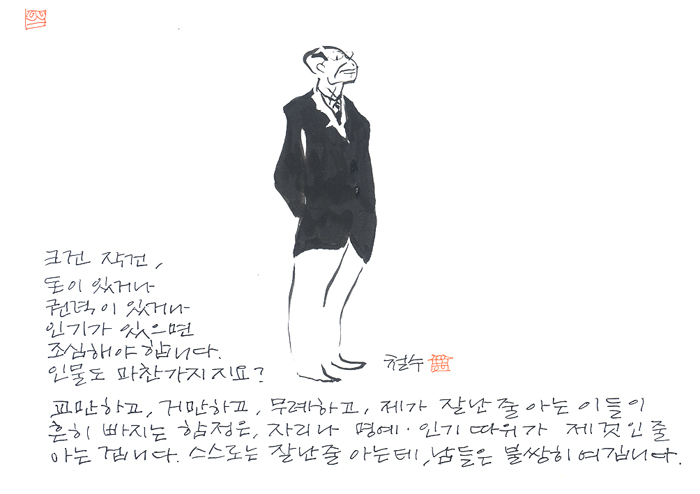 크건 작건,
돈이 있거나
권력이 있거나
인기가 있으면
조심해야 합니다.
인물도 마찬가지지요?
철수
교만하고, 거만하고, 무례하고, 제가 잘난 줄 아는 이들이
흔히 빠지는 함정은, 자리나 명예·인기 따위가 제것인 줄
아는 겁니다. 스스로는 잘난줄 아는데, 남들은 불쌍히 여깁니다.